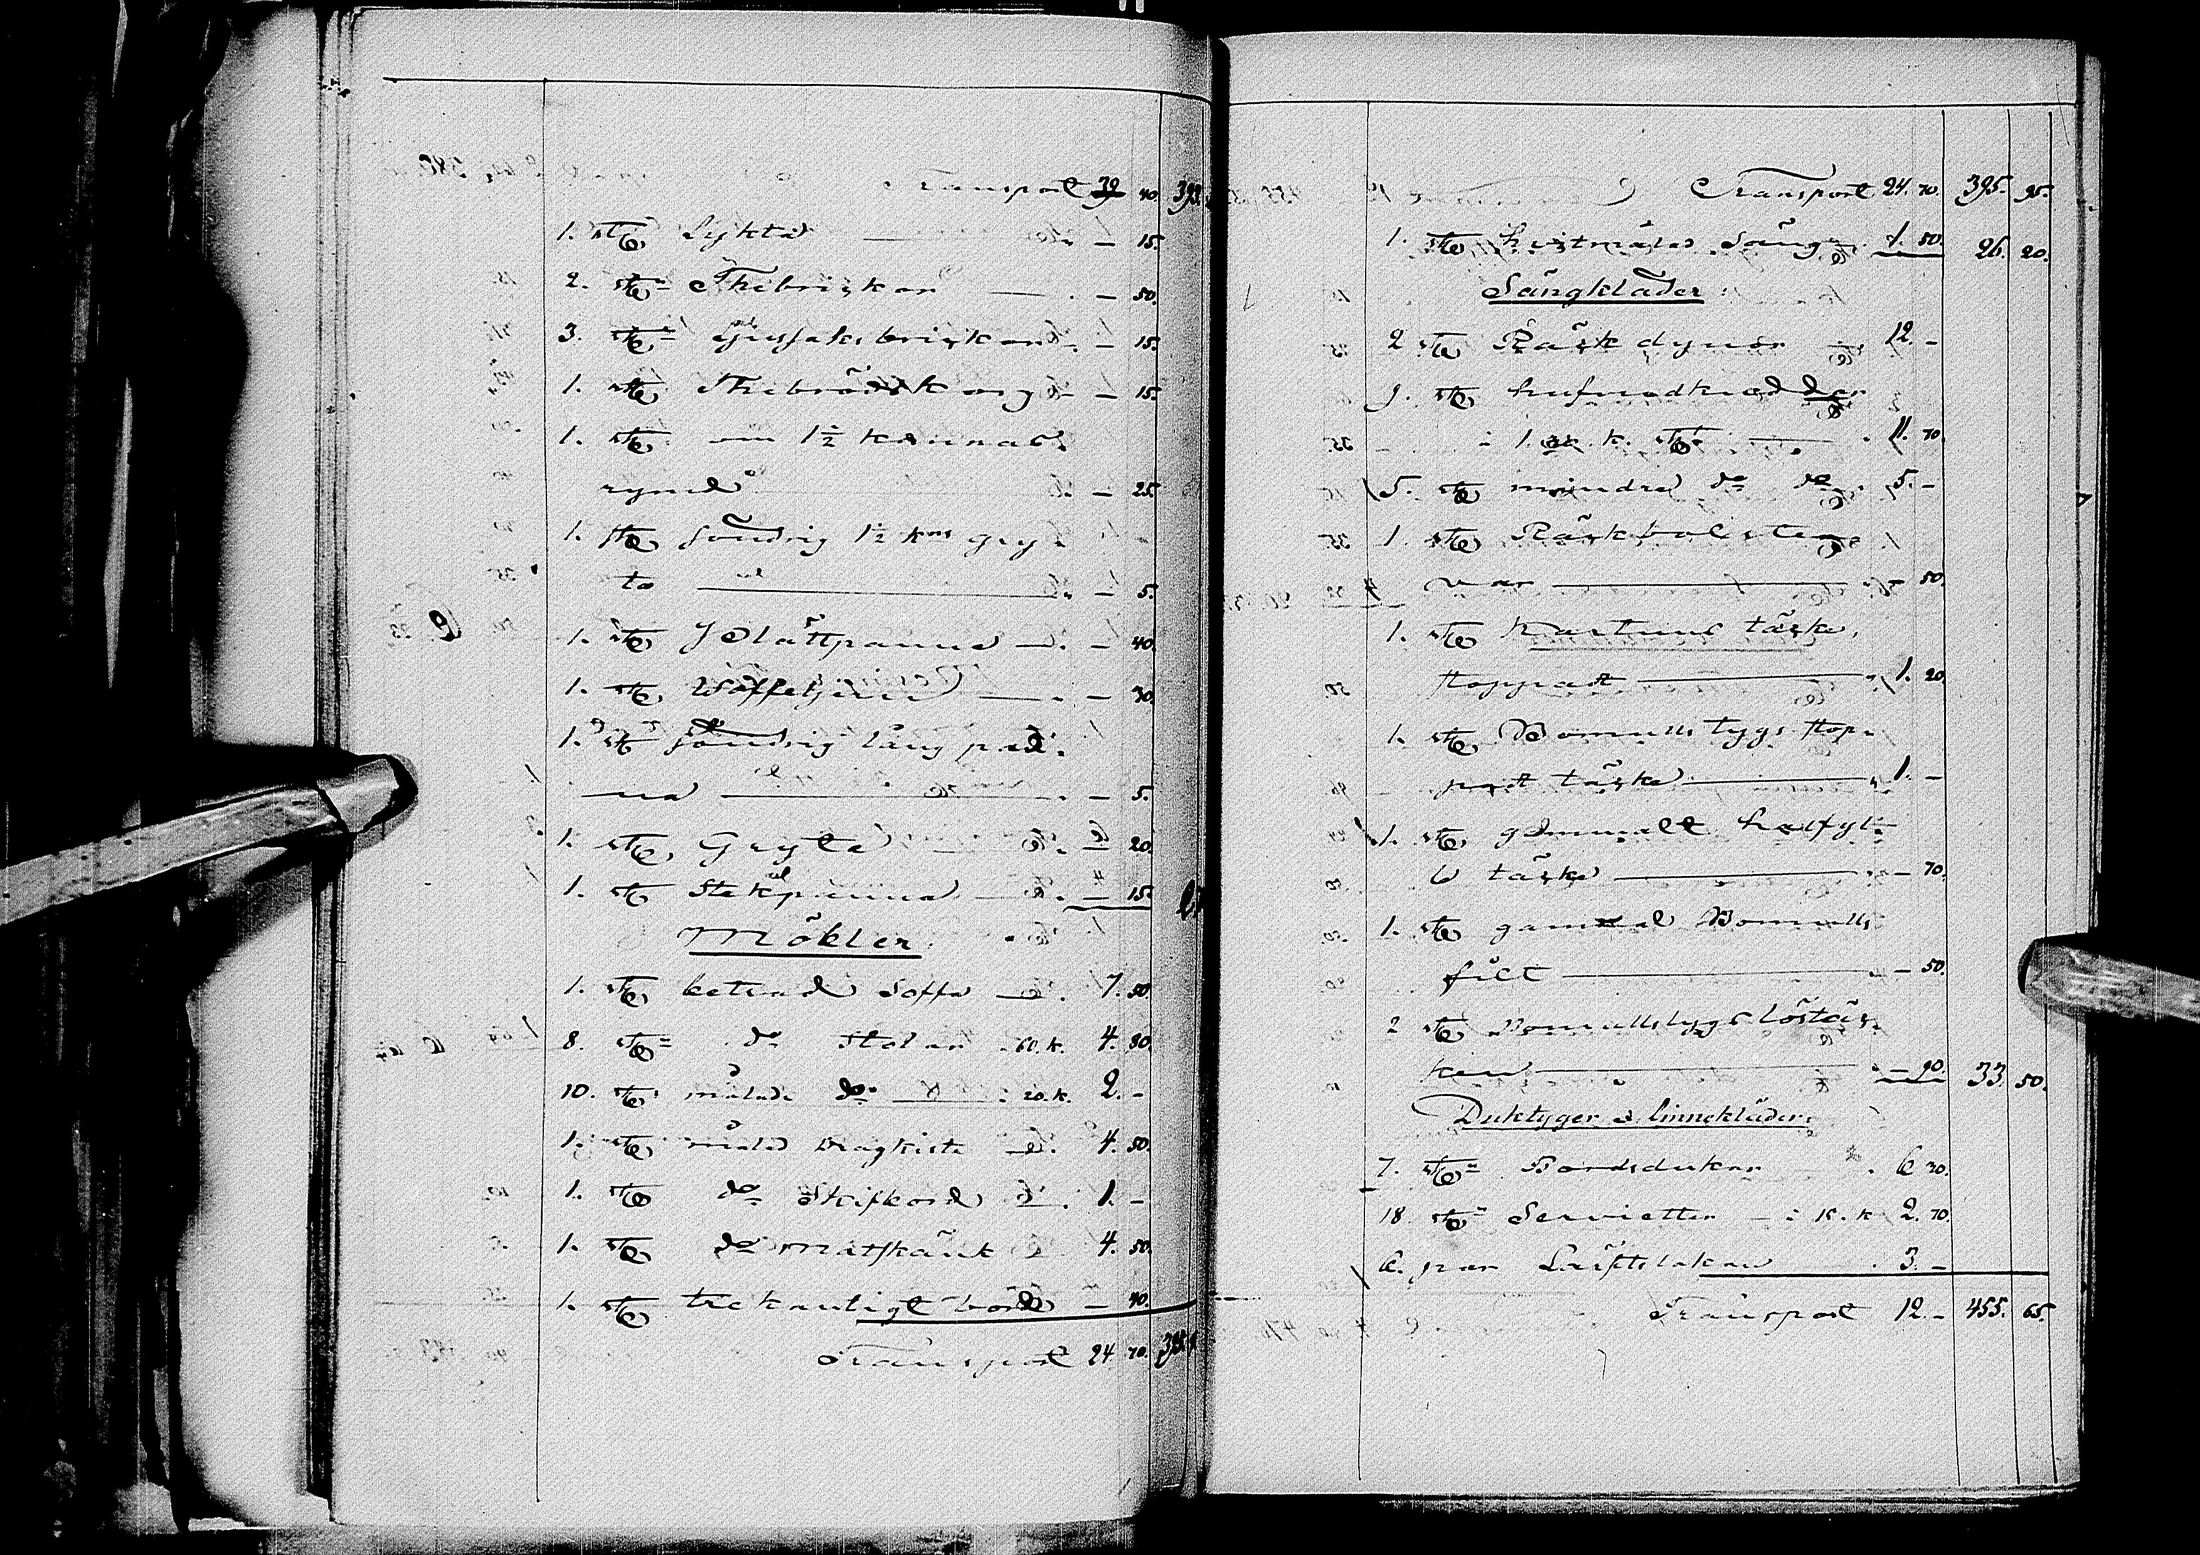 Transport 32 40. 393.
1. st Lykta — 15.
2. st Thebrickor — 50.
3. st Ljussaksbrickor — 15.
1. st Thebrödskorg — 15.
1. st om 1½ kannas
rymd — 25.
1. st söndrig 1½ kns gry-
ta — 5.
1. st Plättpanna — 40.
1. st Wåffeljern — 30.
1. st söndrig lång pan-
na — 5.
1. st Gryta — 20.
1. st Stekpanna — 15.
Möbler.
1. st betsad Soffa 7. 50.
8. st do Stolar 60. k. 4. 80.
10. st målade do 20. k. 2. —
1. st målad Dragkista 4. 50.
1. st do Skifbord 1. —
1. st do Matskänk 4. 50.
1. st trekantigt bord — 40.
Transport 24 70. 395.
Transport 24. 70. 395. 95.
1. st hvitmålad Säng 1. 50. 26. 20.
Sängkläder:
2 st Räskdynor 12. —
9. st hufvudkudder
i 1. k. st 11. 70
5. st mindre do do 5. —
1. st Räskbolster
var — 50.
1. st Kartuns täcke,
stoppadt 1. 20.
1. st Bomullstygs stop-
padt täcke 1. —
1. st gammalt halfyl-
le täcke — 70.
1. st gammal Bomulls
filt — 50.
2 st Bomullstygs löstäc-
ken — 90. 33. 50.
Duktyger & linnekläder.
7. st Bordsdukar 6 30.
18. st Servietter i 15. k 2. 70.
6. par Lärftslakan 3. —
Transport 12. — 455. 65.